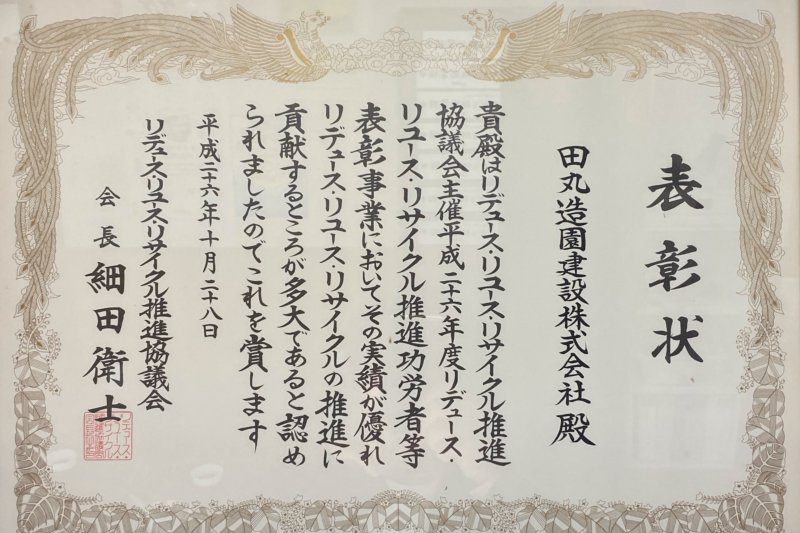 表彰状
田丸造園建設株式会社 殿
貴殿はリデュース・リユース・リサイクル推進
協議会主催平成二十六年度リデュース・
リユース・リサイクル推進功労者等
表彰事業においてその実績が優れ
リデュース・リユース・リサイクルの推進に
貢献するところが多大であると認め
られましたのでこれを賞します
平成二十六年十月二十八日
リデュース・リユース・リサイクル推進協議会
会長 細田衛士